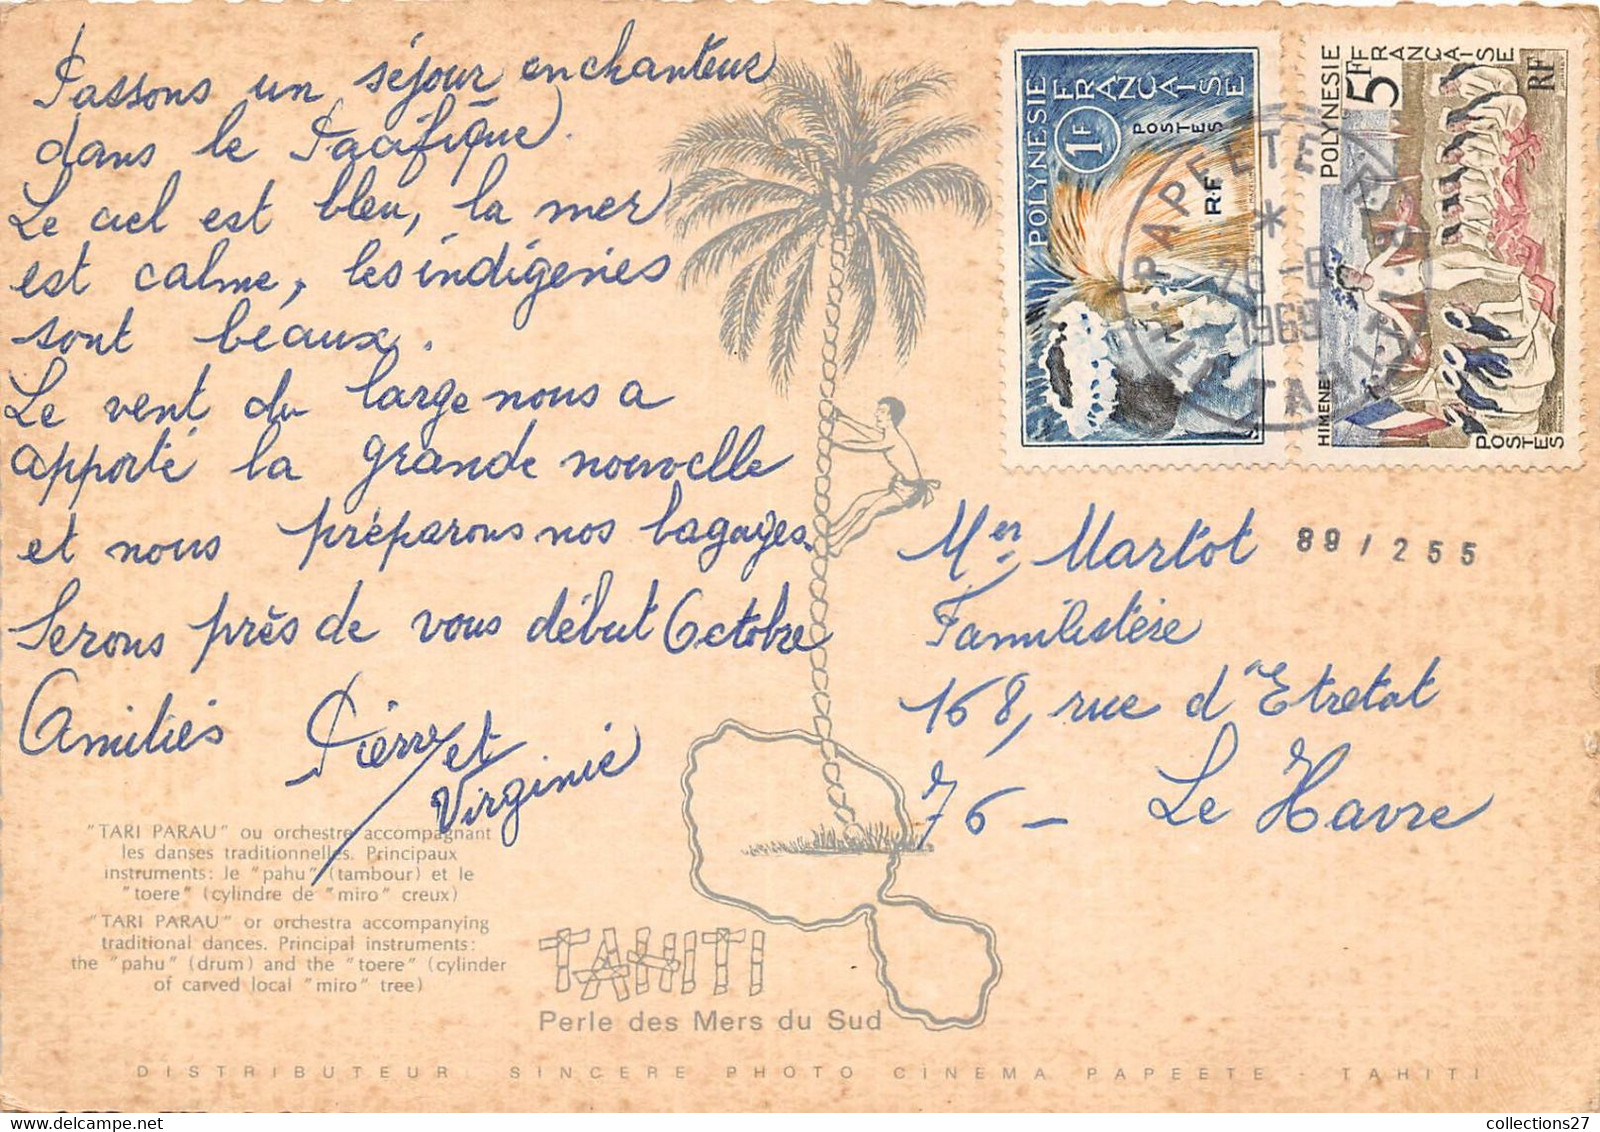 Passons un séjour enchanteur
dans le Pacifique.
Le ciel est bleu, la mer
est calme, les indigènes
sont beaux.
Le vent du large nous a
apporté la grande nouvelle
et nous préparons nos bagages.
Serons près de vous début Octobre
Amitiés Pierre et
Virginie
"TARI PARAU" ou orchestre accompagnant
les danses traditionnelles. Principaux
instruments: le "pahu" (tambour) et le
"toere" (cylindre de "miro" creux)
"TARI PARAU" or orchestra accompanying
traditional dances. Principal instruments:
the "pahu" (drum) and the "toere" (cylinder
of carved local "miro" tree)
TAHITI
Perle des Mers du Sud
DISTRIBUTEUR: SINCERE PHOTO CINÉMA PAPEETE - TAHITI
POLYNESIE
FRANÇAISE
1F
POSTES
R.F
POLYNESIE
FRANÇAISE
5F
RF
HIMENE
POSTES
PAPEETE R.P.
*
26-8
1968
TAHITI
Mer Martot
89/255
Familistère
168, rue d'Etretat
76 - Le Havre
collections27